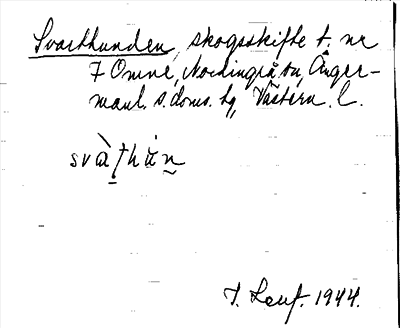 Svarthunden, skogsskifte t. nr
7 Omne, Nordingrå sn, Ånger-
manl. s. doms. hg, Västern. l.
svàṭhúṇ
1944.